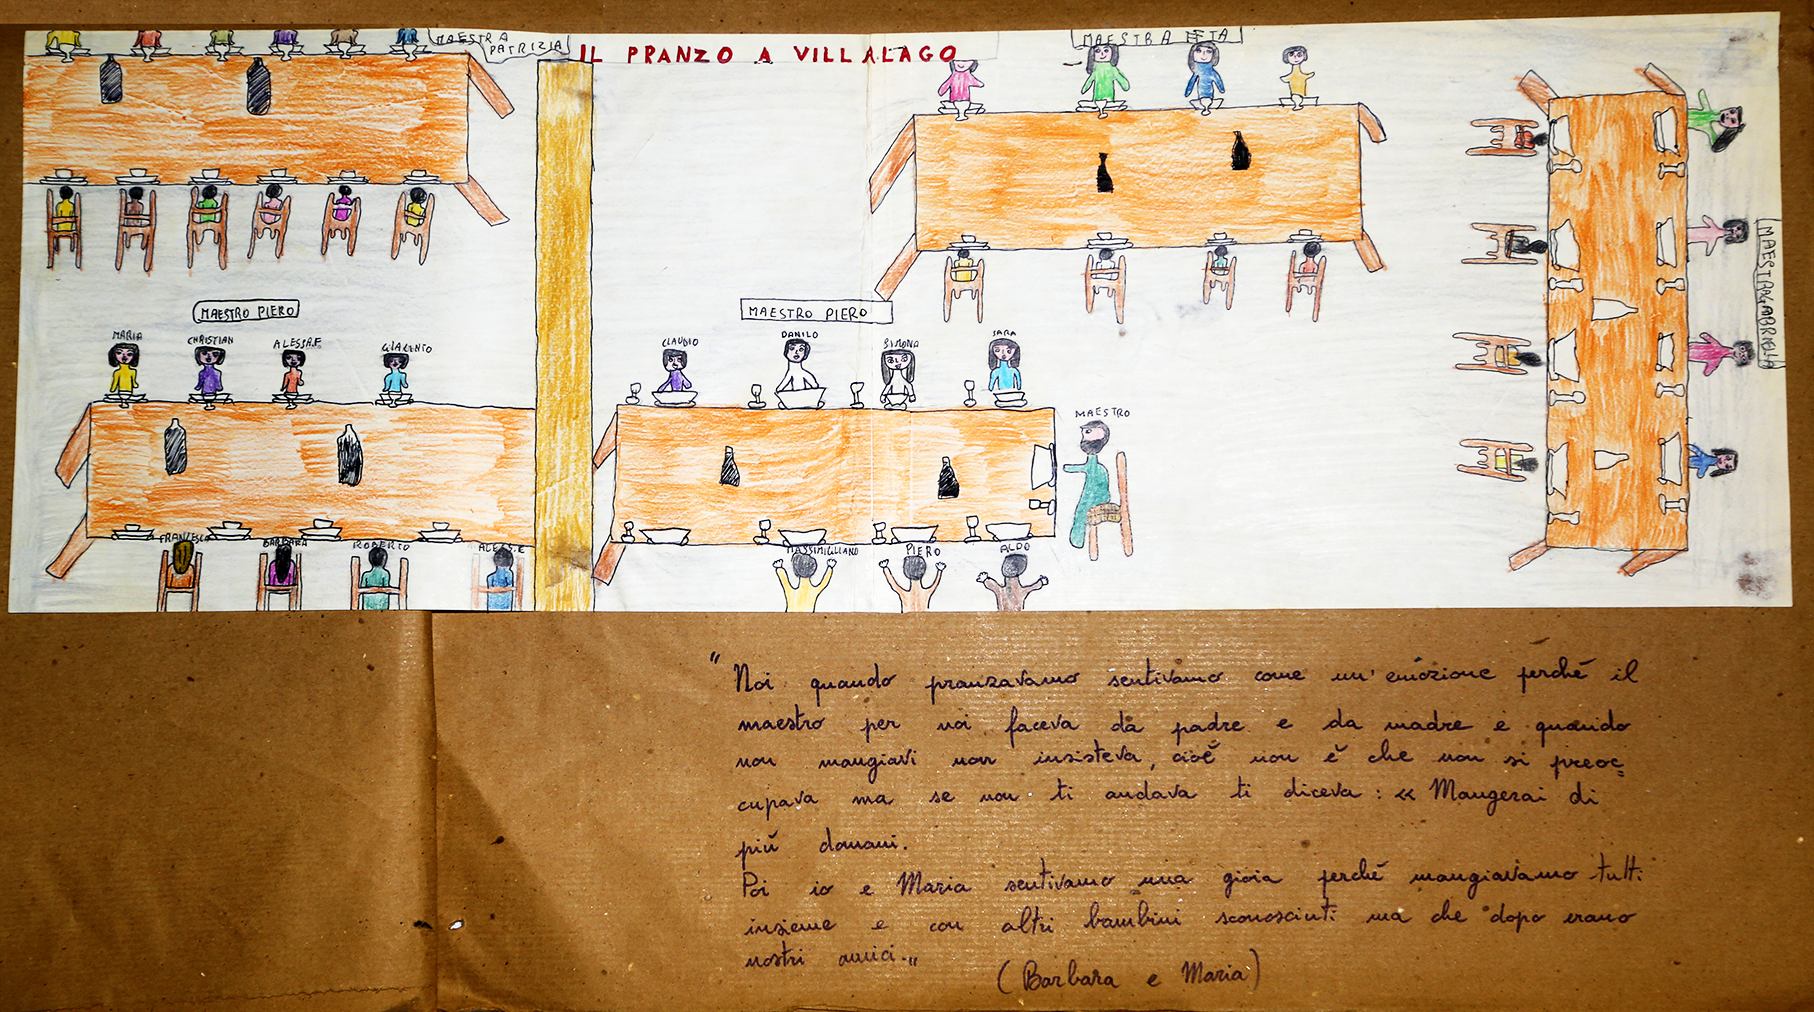 MAESTRA
PATRIZIA
IL PRANZO A VILLALAGO
MAESTRA
MAESTRA GABRIELLA
MAESTRO PIERO
MARIA
CHRISTIAN
ALESSA.F
GIACINTO
FRANCESCA
BARBARA
ROBERTO
ALESS.E
MAESTRO PIERO
CLAUDIO
DANILO
SIMONA
SARA
MAESTRO
MASSIMIGLIANO
PIERO
ALDO
" Noi quando pranzavamo sentivamo come un' emozione perché il
maestro per noi faceva da padre e da madre e quando
non mangiavi non insisteva, cioè non è che non si preoc=
cupava ma se non ti andava ti diceva: « Mangerai di
più domani.
Poi io e Maria sentivamo una gioia perché mangiavamo tutti
insieme e con altri bambini sconosciuti ma che dopo erano
nostri amici. "
(Barbara e Maria)